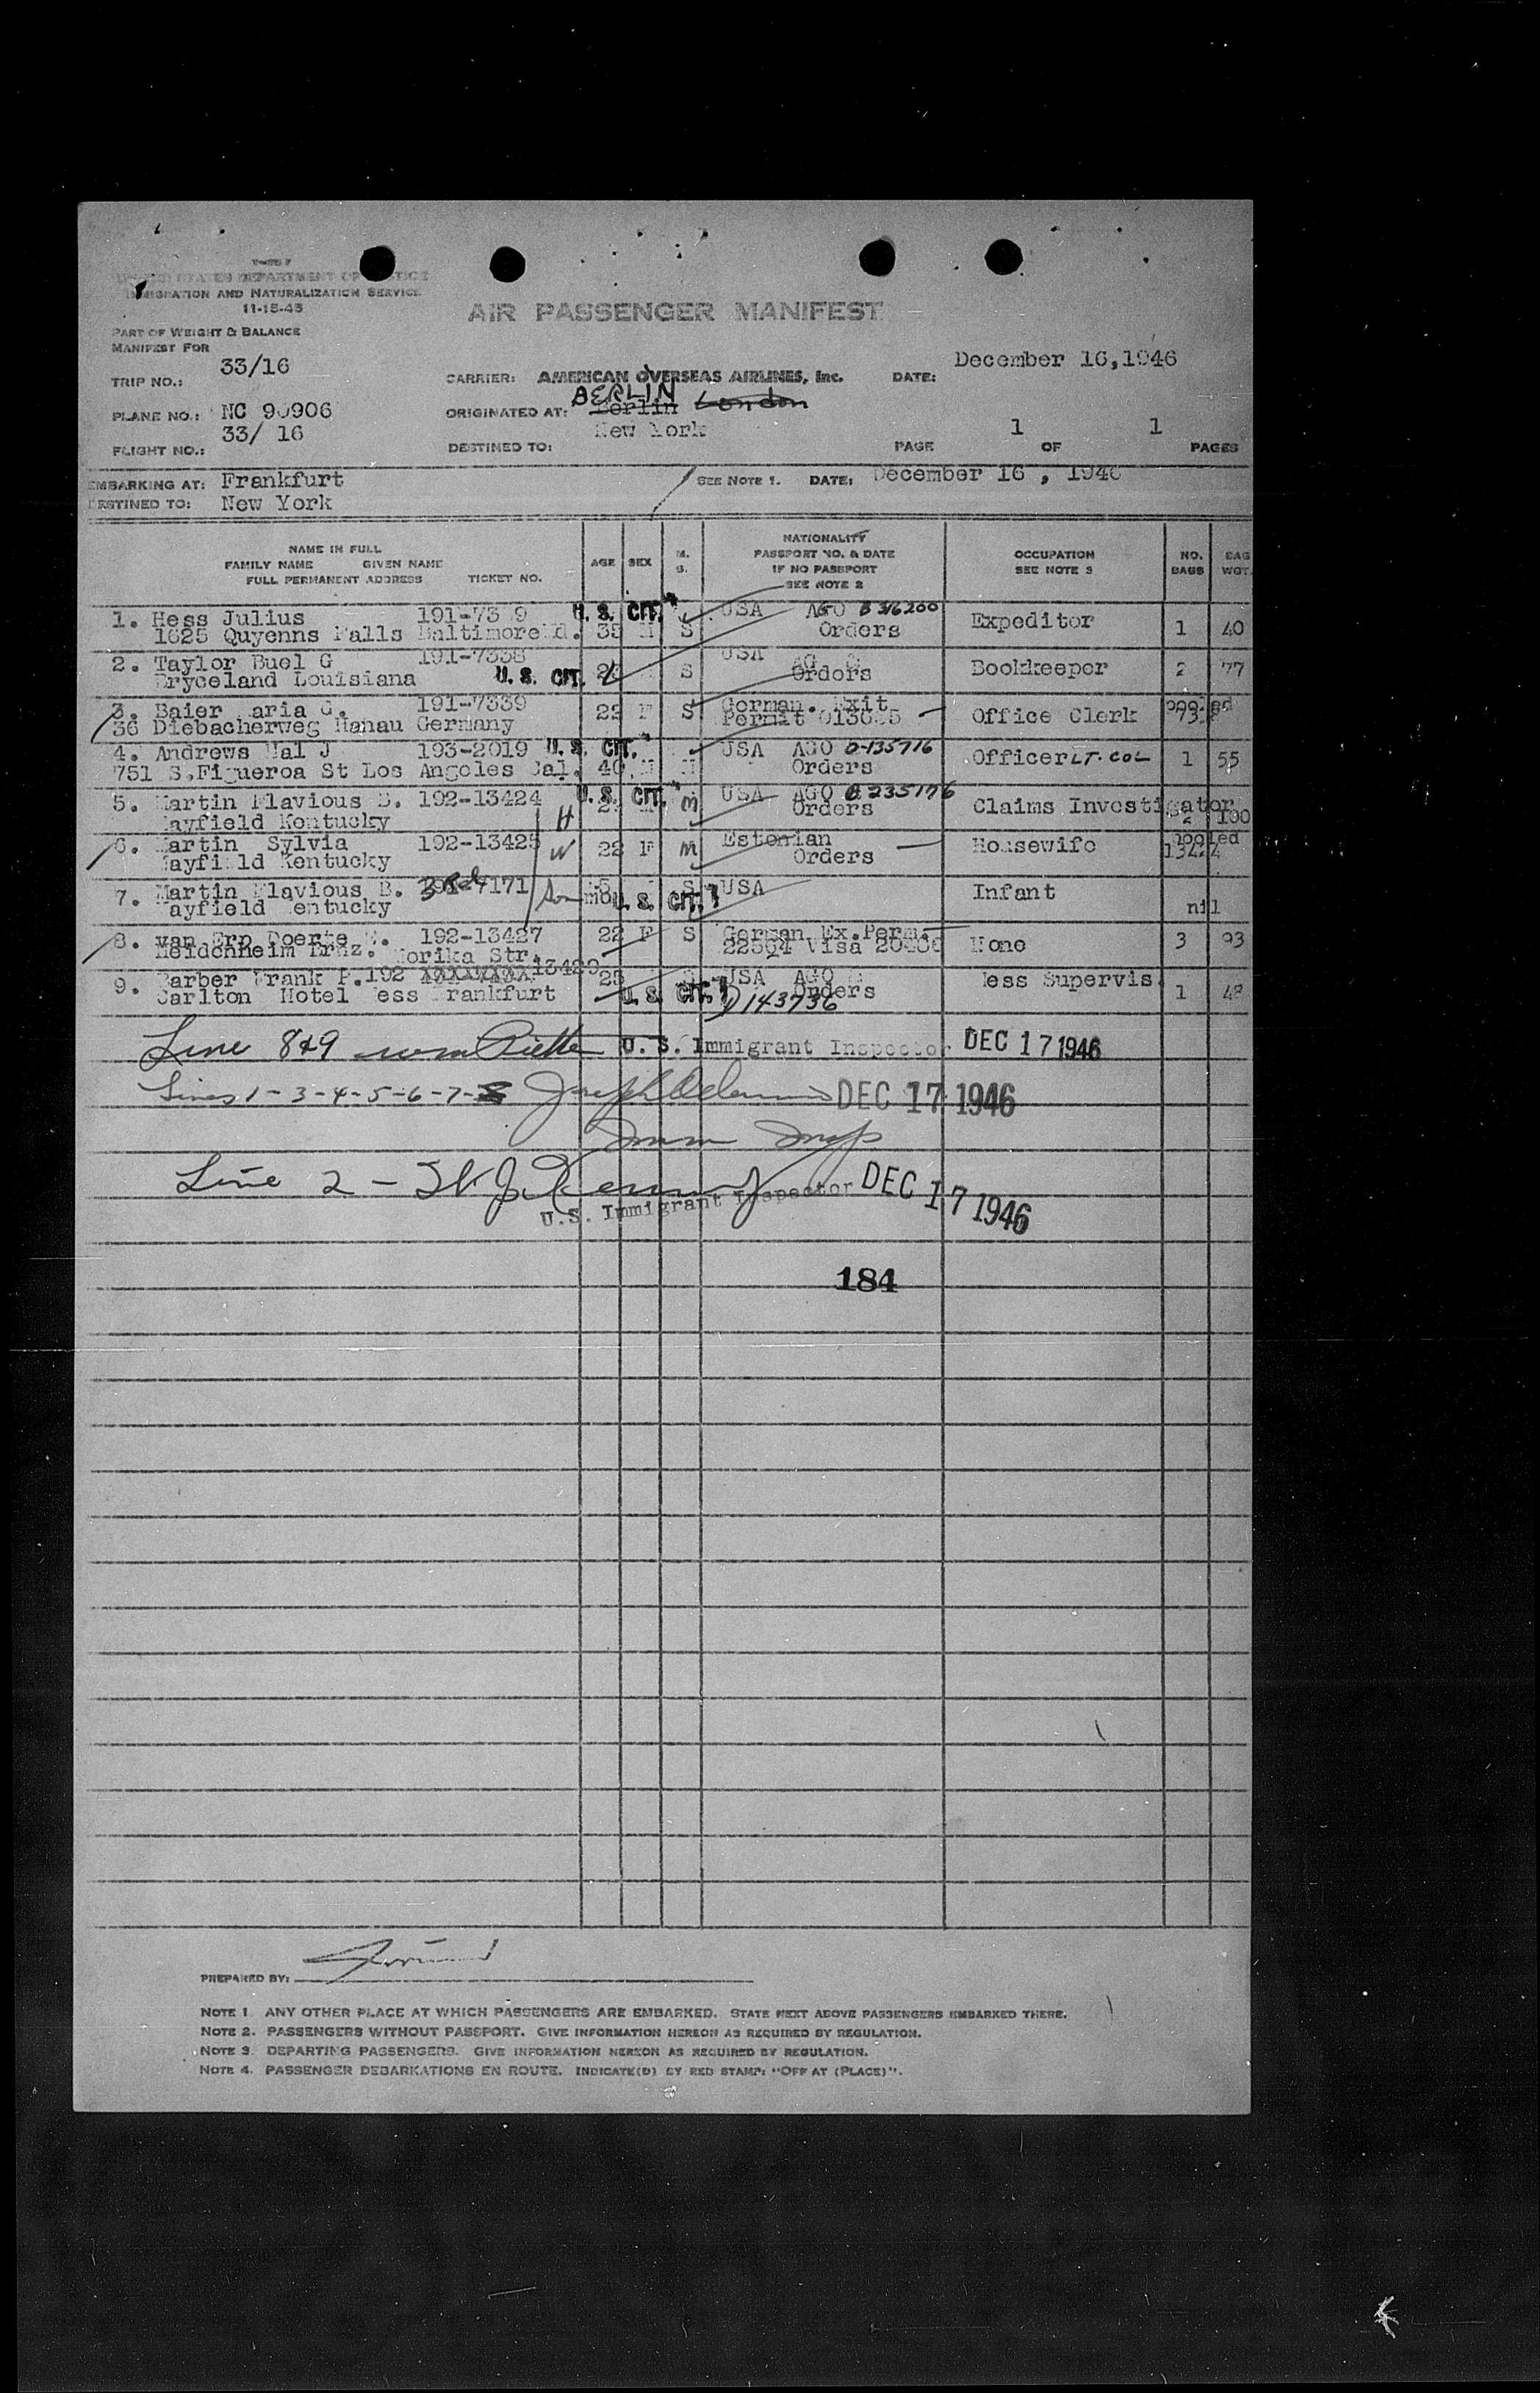 UNITED STATES DEPARTMENT OF JUSTICE
IMMIGRATION AND NATURALIZATION SERVICE
11-15-45
AIR PASSENGER MANIFEST
PART OF WEIGHT & BALANCE
MANIFEST FOR
TRIP NO.: 33/16
CARRIER: AMERICAN OVERSEAS AIRLINES, Inc. DATE: December 16,1946
PLANE NO.: NC 90906
ORIGINATED AT: BERLIN Berlin London
FLIGHT NO.: 33/ 16
DESTINED TO: New York
PAGE 1 OF 1 PAGES
EMBARKING AT: Frankfurt
SEE NOTE 1. DATE: December 16, 1946
DESTINED TO: New York
NAME IN FULL
FAMILY NAME GIVEN NAME
FULL PERMANENT ADDRESS TICKET NO.
AGE SEX M. S.
NATIONALITY
PASSPORT NO. & DATE
IF NO PASSPORT
SEE NOTE 2
OCCUPATION
SEE NOTE 3
NO. BAGS
BAG WGT.
1. Hess Julius U. S. CIT. USA AGO B316200 Expeditor
1625 Quyenns Falls Baltimore Md. 35 M S Orders 1 40
2. Taylor Buel G 191-7338 USA Bookkeeper 2 77
Bryceland Louisiana U. S. CIT. S Orders
3. Baier Maria G. 191-7339 F S German. Exit Office Clerk pooled
36 Diebacherweg Hanau Germany Permit
4. Andrews Hal J 193-2019 U. S. CIT. USA AGO O-135716 Officer LT. COL 1 55
751 S.Figueroa St Los Angeles Cal. 40 M M Orders
5. Martin Flavious B. 192-13424 U. S. CIT. M USA AGO Claims Investigator
Mayfield Kentucky H Orders 2 100
6. Martin Sylvia 192-13425 W 22 F M Estonian Housewife pooled
Mayfield Kentucky Orders 13424
7. Martin Flavious B. Son S USA Infant
Mayfield Kentucky mo U. S. CIT. nil
8. van Erp Doerte 192-13427 22 F S German Ex.Perm. None 3 93
Heidenheim Brnz. Morika Str. Visa
9. Barber Frank P.192 25 USA AGO Mess Supervis.
Carlton Hotel Mess Frankfurt U. S. CIT. Orders 1 48
D143736
Line 8&9 U. S. Immigrant Inspector. DEC 17 1946
Lines 1-3-4-5-6-7- DEC 17 1946
Imm Insp
Line 2 - DEC 17 1946
U.S. Immigrant Inspector
184
PREPARED BY:
NOTE 1. ANY OTHER PLACE AT WHICH PASSENGERS ARE EMBARKED. STATE NEXT ABOVE PASSENGERS EMBARKED THERE.
NOTE 2. PASSENGERS WITHOUT PASSPORT. GIVE INFORMATION HEREON AS REQUIRED BY REGULATION.
NOTE 3. DEPARTING PASSENGERS. GIVE INFORMATION HEREON AS REQUIRED BY REGULATION.
NOTE 4. PASSENGER DEBARKATIONS EN ROUTE. INDICATE(D) BY RED STAMP: "OFF AT (PLACE)".